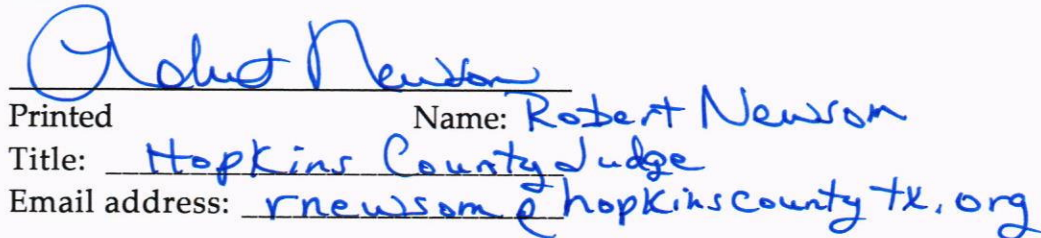 Robert Newsom
Printed Name: Robert Newsom
Title: Hopkins County Judge
Email address: rnewsom@hopkinscountytx.org